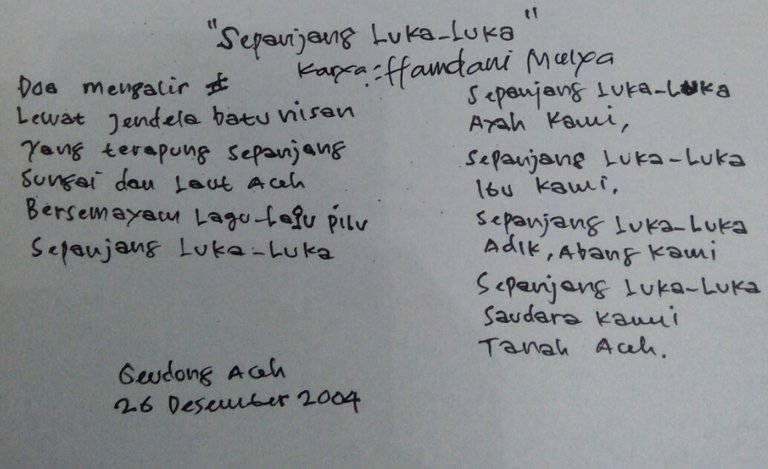 "Sepanjang Luka-Luka"
Karya : Hamdani Mulya
Doa mengalir
Lewat jendela batu nisan
yang terapung sepanjang
sungai dan laut Aceh
Bersemayam lagu-lagu pilu
Sepanjang Luka-Luka
Sepanjang Luka-Luka
Ayah Kami,
Sepanjang Luka-Luka
Ibu Kami.
Sepanjang Luka-Luka
Adik, Abang Kami
Sepanjang Luka-Luka
Saudara Kami
Tanah Aceh.
Geudong Aceh
26 Desember 2004